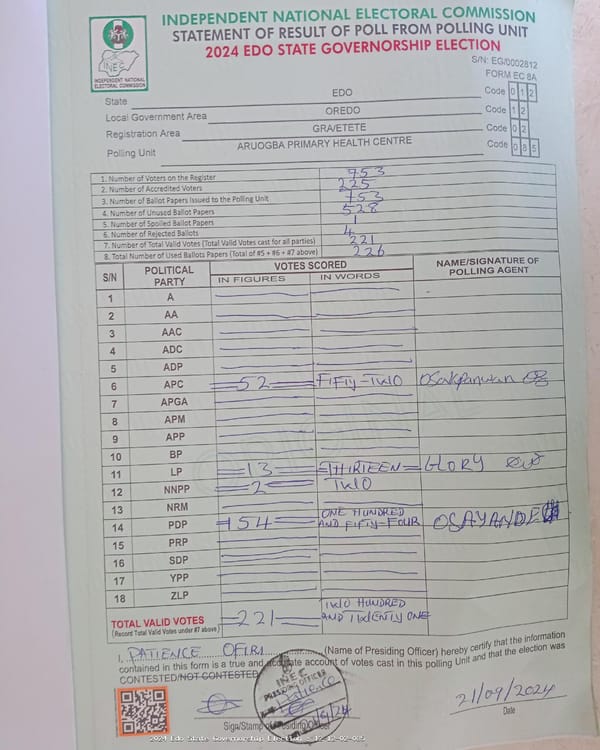 INDEPENDENT NATIONAL ELECTORAL COMMISSION
STATEMENT OF RESULT OF POLL FROM POLLING UNIT
2024 EDO STATE GOVERNORSHIP ELECTION
INEC
INDEPENDENT NATIONAL
ELECTORAL COMMISSION
S/N: EG/0002812
FORM EC 8A
State EDO Code 012
Local Government Area OREDO Code 12
Registration Area GRA/ETETE Code 02
Polling Unit ARUOGBA PRIMARY HEALTH CENTRE Code 085
1. Number of Voters on the Register 753
2. Number of Accredited Voters 225
3. Number of Ballot Papers Issued to the Polling Unit 753
4. Number of Unused Ballot Papers 528
5. Number of Spoiled Ballot Papers 1
6. Number of Rejected Ballots 4
7. Number of Total Valid Votes (Total Valid Votes cast for all parties) 221
8. Total Number of Used Ballots Papers (Total of #5 + #6 + #7 above) 226
S/N POLITICAL PARTY VOTES SCORED NAME/SIGNATURE OF POLLING AGENT
IN FIGURES IN WORDS
1 A
2 AA
3 AAC
4 ADC
5 ADP
6 APC 52 FIFTY-TWO
7 APGA
8 APM
9 APP
10 BP
11 LP 13 THIRTEEN GLORY
12 NNPP 2 TWO
13 NRM
14 PDP 154 ONE HUNDRED AND FIFTY-FOUR OSAYANDE
15 PRP
16 SDP
17 YPP
18 ZLP
TOTAL VALID VOTES 221 TWO HUNDRED AND TWENTY ONE
(Record Total Valid Votes under #7 above)
I, PATIENCE OFIRI (Name of Presiding Officer) hereby certify that the information
contained in this form is a true and accurate account of votes cast in this polling Unit and that the election was
CONTESTED/NOT CONTESTED
INEC
PRESIDING OFFICER
Sign/Stamp of Presiding Officer
21/09/2024
Date
2024 Edo State Governorship Election - 12-12-02-085